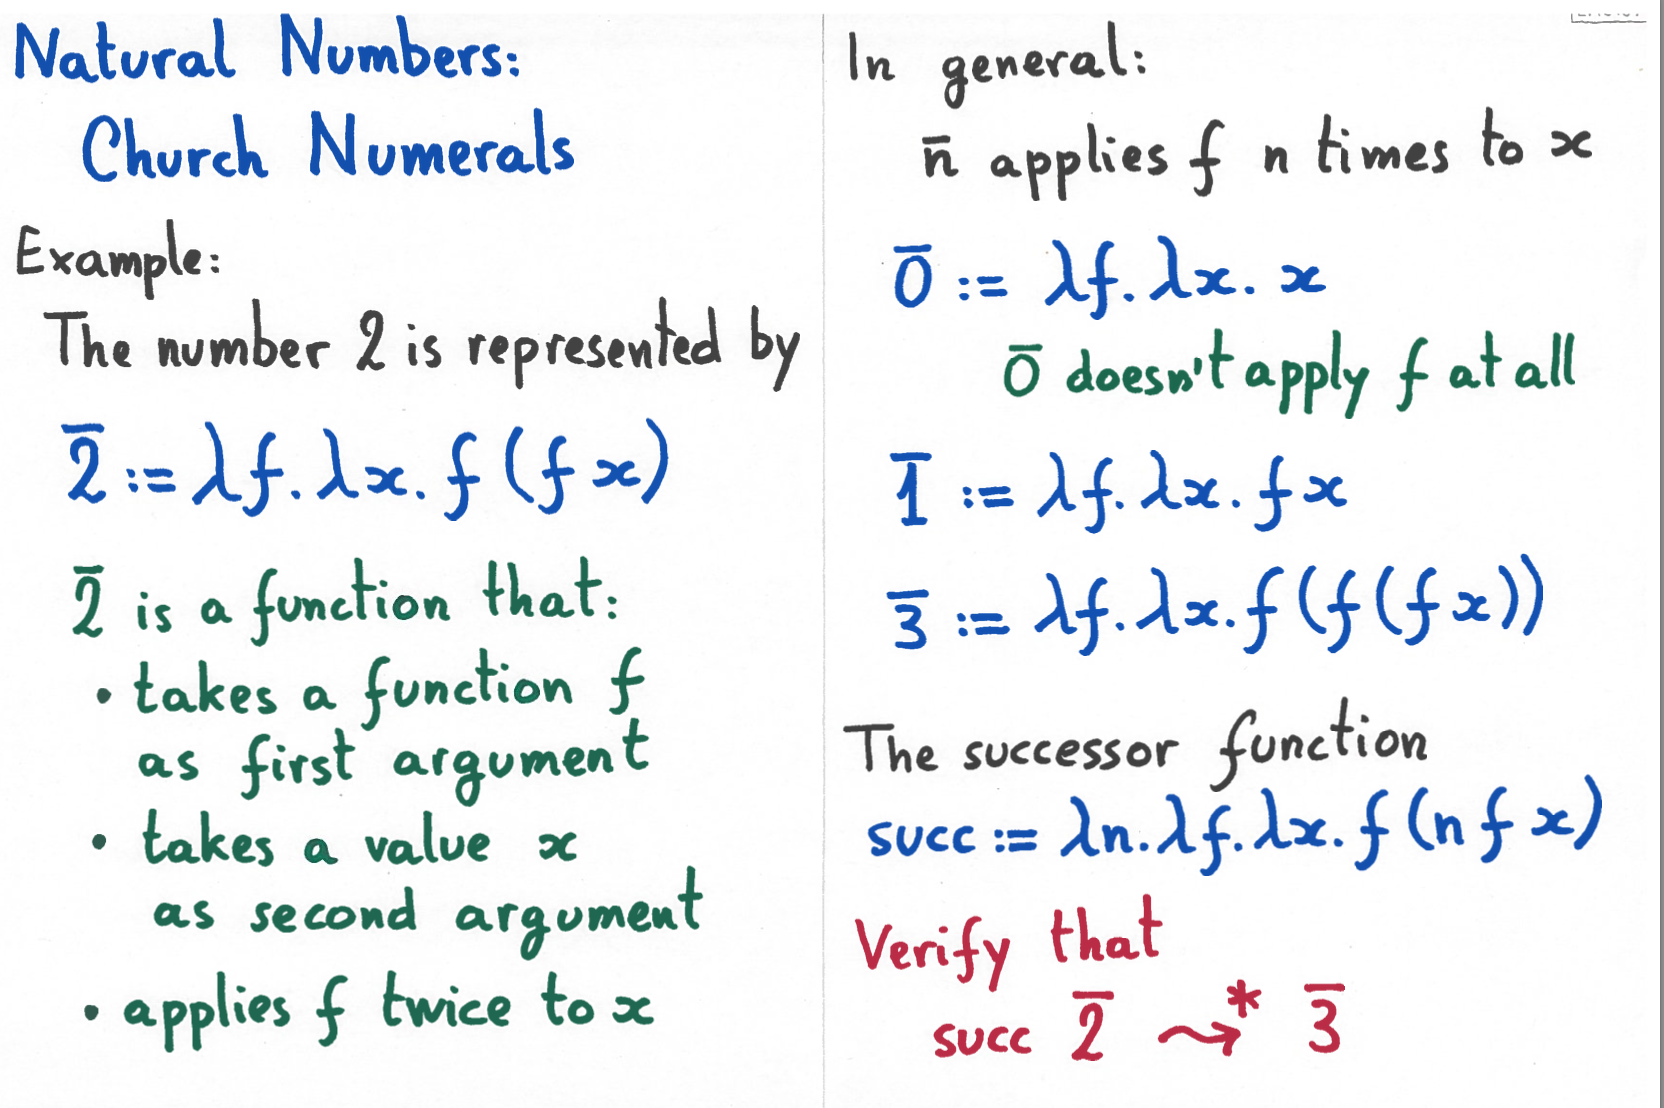 Natural Numbers:
Church Numerals
Example:
The number 2 is represented by
2̅ := λf. λx. f (f x)
2̅ is a function that:
• takes a function f
as first argument
• takes a value x
as second argument
• applies f twice to x
In general:
n̅ applies f n times to x
0̅ := λf. λx. x
0̅ doesn't apply f at all
1̅ := λf. λx. f x
3̅ := λf. λx. f (f (f x))
The successor function
succ := λn. λf. λx. f (n f x)
Verify that
succ 2̅ ⤳* 3̅